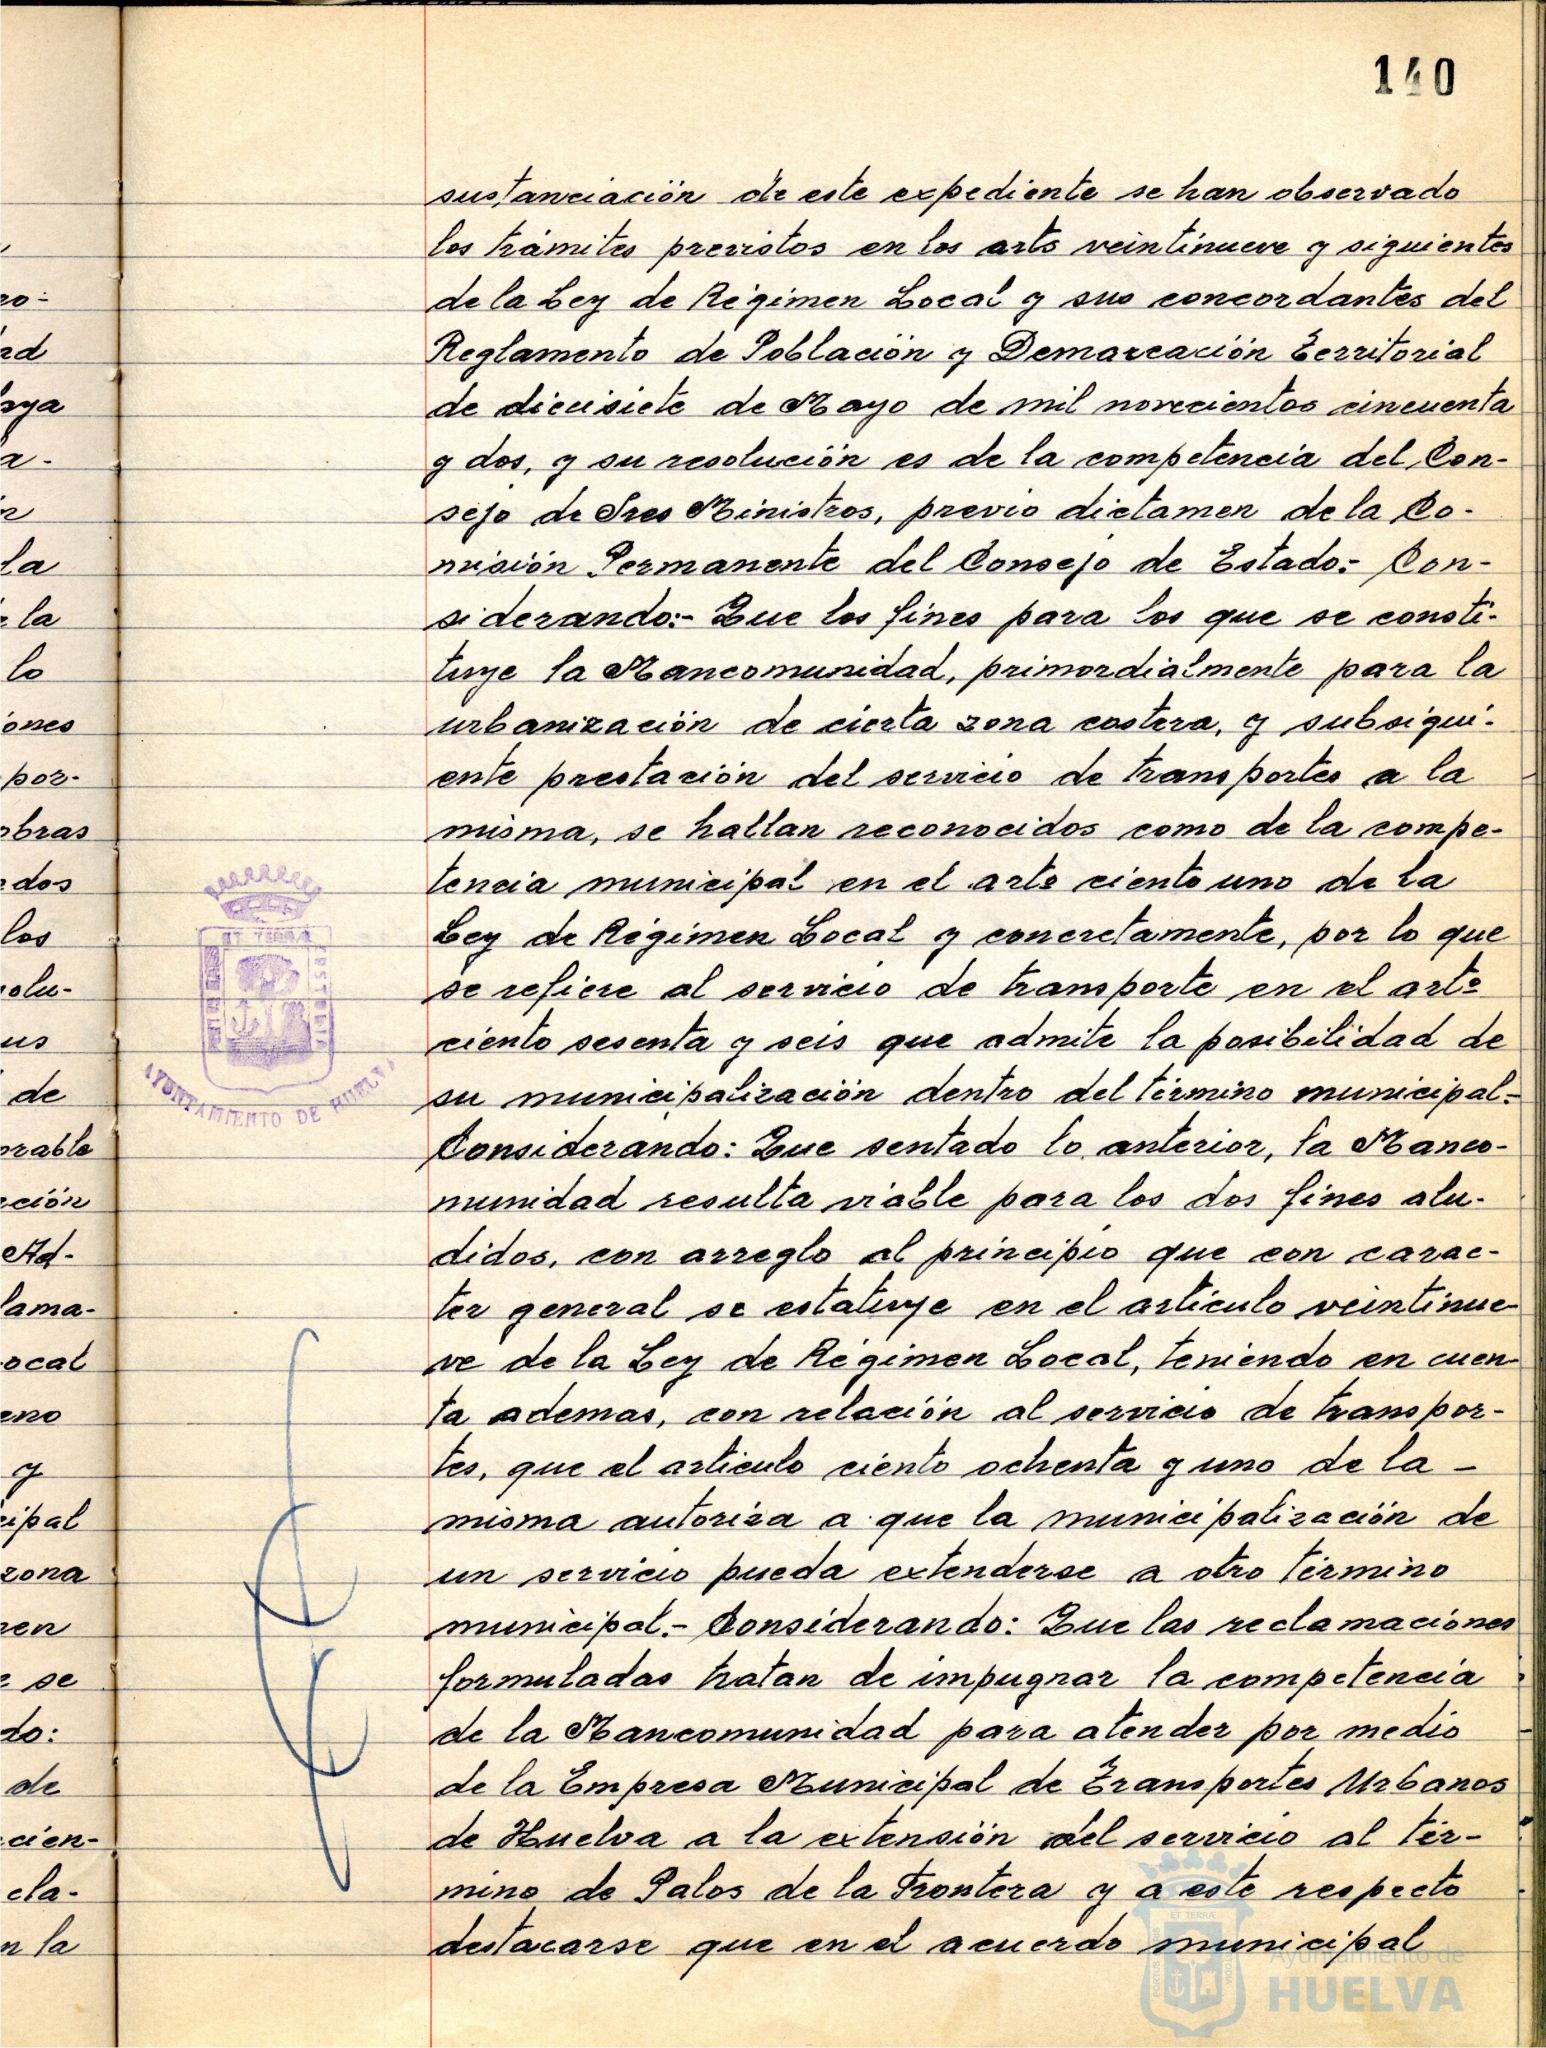 140
sustanciación de este expediente se han observado
los trámites previstos en los arts veintinueve y siguientes
de la Ley de Régimen Local y sus concordantes del
Reglamento de Población y Demarcación Territorial
de diecisiete de Mayo de mil novecientos cincuenta
y dos, y su resolución es de la competencia del Con-
sejo de Sres Ministros, previo dictamen de la Co-
misión Permanente del Consejo de Estado.- Con-
siderando:- Que los fines para los que se consti-
tuye la Mancomunidad, primordialmente para la
urbanización de cierta zona costera, y subsigui-
ente prestación del servicio de transportes a la
misma, se hallan reconocidos como de la compe-
tencia municipal en el artº ciento uno de la
Ley de Régimen Local y concretamente, por lo que
se refiere al servicio de transporte en el artº
ciento sesenta y seis que admite la posibilidad de
su municipalización dentro del término municipal.-
Considerando: Que sentado lo anterior, la Manco-
munidad resulta viable para los dos fines alu-
didos, con arreglo al principio que con carac-
ter general se estatuye en el artículo veintinue-
ve de la Ley de Régimen Local, teniendo en cuen-
ta ademas, con relación al servicio de transpor-
tes, que el artículo ciento ochenta y uno de la -
misma autoriza a que la municipalización de
un servicio pueda extenderse a otro término
municipal.- Considerando: Que las reclamaciones
formuladas tratan de impugnar la competencia
de la Mancomunidad para atender por medio
de la Empresa Municipal de Transportes Urbanos
de Huelva a la extensión del servicio al tér-
mino de Palos de la Frontera y a este respecto
destacarse que en el acuerdo municipal
ro-
ad
aya
a-
n
la
e la
lo
ones
por-
obras
dos
los
olu-
us
de
orable
ción
Ad-
lama-
ocal
eno
y
cipal
zona
men
e se
do:
de
cien-
cla-
n la
ET TERRÆ
AYUNTAMIENTO DE HUELVA
ET TERRÆ
PORTUS
Ayuntamiento de
HUELVA